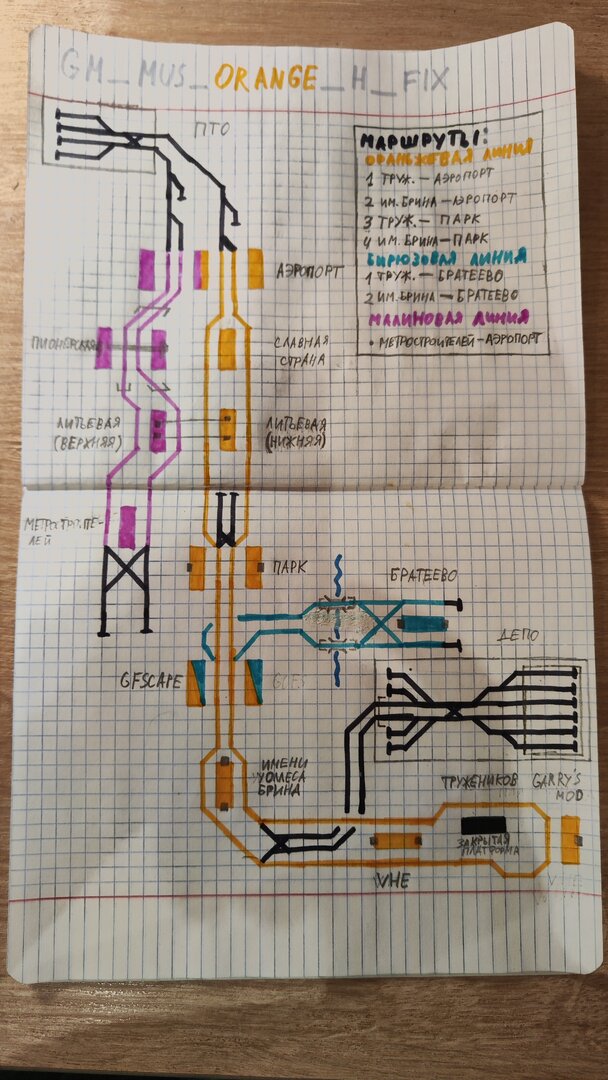 GM_MUS_ORANGE_H_FIX
ПТО
МАРШРУТЫ:
ОРАНЖЕВАЯ ЛИНИЯ
1 ТРУЖ. — АЭРОПОРТ
2 ИМ. БРИНА — АЭРОПОРТ
3 ТРУЖ. — ПАРК
4 ИМ. БРИНА — ПАРК
БИРЮЗОВАЯ ЛИНИЯ
1 ТРУЖ. — БРАТЕЕВО
2 ИМ. БРИНА — БРАТЕЕВО
МАЛИНОВАЯ ЛИНИЯ
• МЕТРОСТРОИТЕЛЕЙ — АЭРОПОРТ
АЭРОПОРТ
ПИОНЕРСКАЯ
СЛАВНАЯ
СТРАНА
ЛИТЬЕВАЯ
(ВЕРХНЯЯ)
ЛИТЬЕВАЯ
(НИЖНЯЯ)
МЕТРОСТРОИТЕ-
ЛЕЙ
ПАРК
БРАТЕЕВО
ДЕПО
GFSCAPE
ИМЕНИ
УОЛЕСА
БРИНА
ТРУЖЕНИКОВ
GARRY'S
MOD
ЗАКРЫТАЯ
ПЛАТФОРМА
VHE